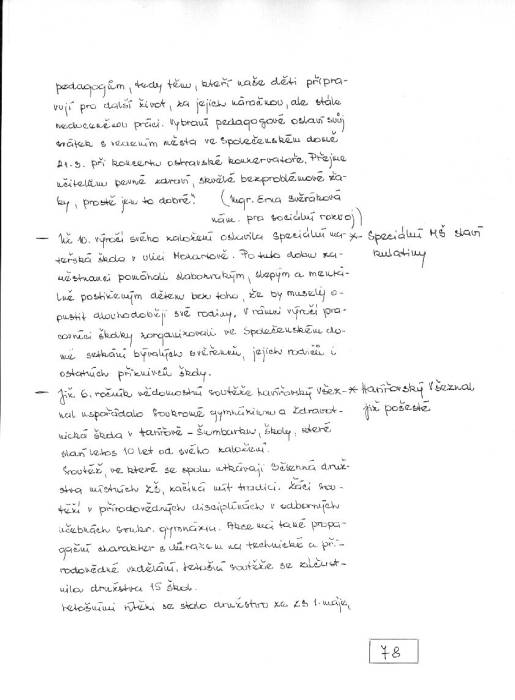 pedagogům, tedy těm, kteří naše děti připra-
vují pro další život, za jejich náročnou, ale stále
nedoceněnou práci. Vybraní pedagogové oslaví svůj
svátek s vedením města ve Společenském domě
21.3. při koncertu ostravské konzervatoře. Přejme
učitelům pevné zdraví, skvělé bezproblémové žá-
ky, prostě jen to dobré." (Mgr. Ema Svěráková
nám. pro sociální rozvoj)
— Už 10. výročí svého založení oslavila Speciální ma- * Speciální MŠ slaví
teřská škola v ulici Mozartově. Po tuto dobu za- kulatiny
městnanci pomáhali slabozrakým, slepým a mentál-
ně postiženým dětem bez toho, že by musely o-
pustit dlouhodoběji své rodiny. V rámci výročí pra-
covníci školky zorganizovali ve Společenském do-
mě setkání bývalých svěřenců, jejich rodičů i
ostatních příznivců školy.
— Již 6. ročník vědomostní soutěže havířovský Všez- * Havířovský Všeznal
nal uspořádalo Soukromé gymnázium a Zdravot- již pošesté
nická škola v Havířově - Šumbarku, školy, které
slaví letos 10 let od svého založení.
Soutěž, ve které se spolu utkávají družk-
stva místních ZŠ, začíná mít tradici. Žáci sou-
těží v přírodovědných disciplínách v odborných
učebnách soukr. gymnázia. Akce má také propa-
gační charakter s důrazem na technické a pří-
rodovědné vzdělání. Letošní soutěže se zúčast-
nila družstva 15 škol.
Letošními vítězi se stalo družstvo ze ZŠ 1. máje,
78